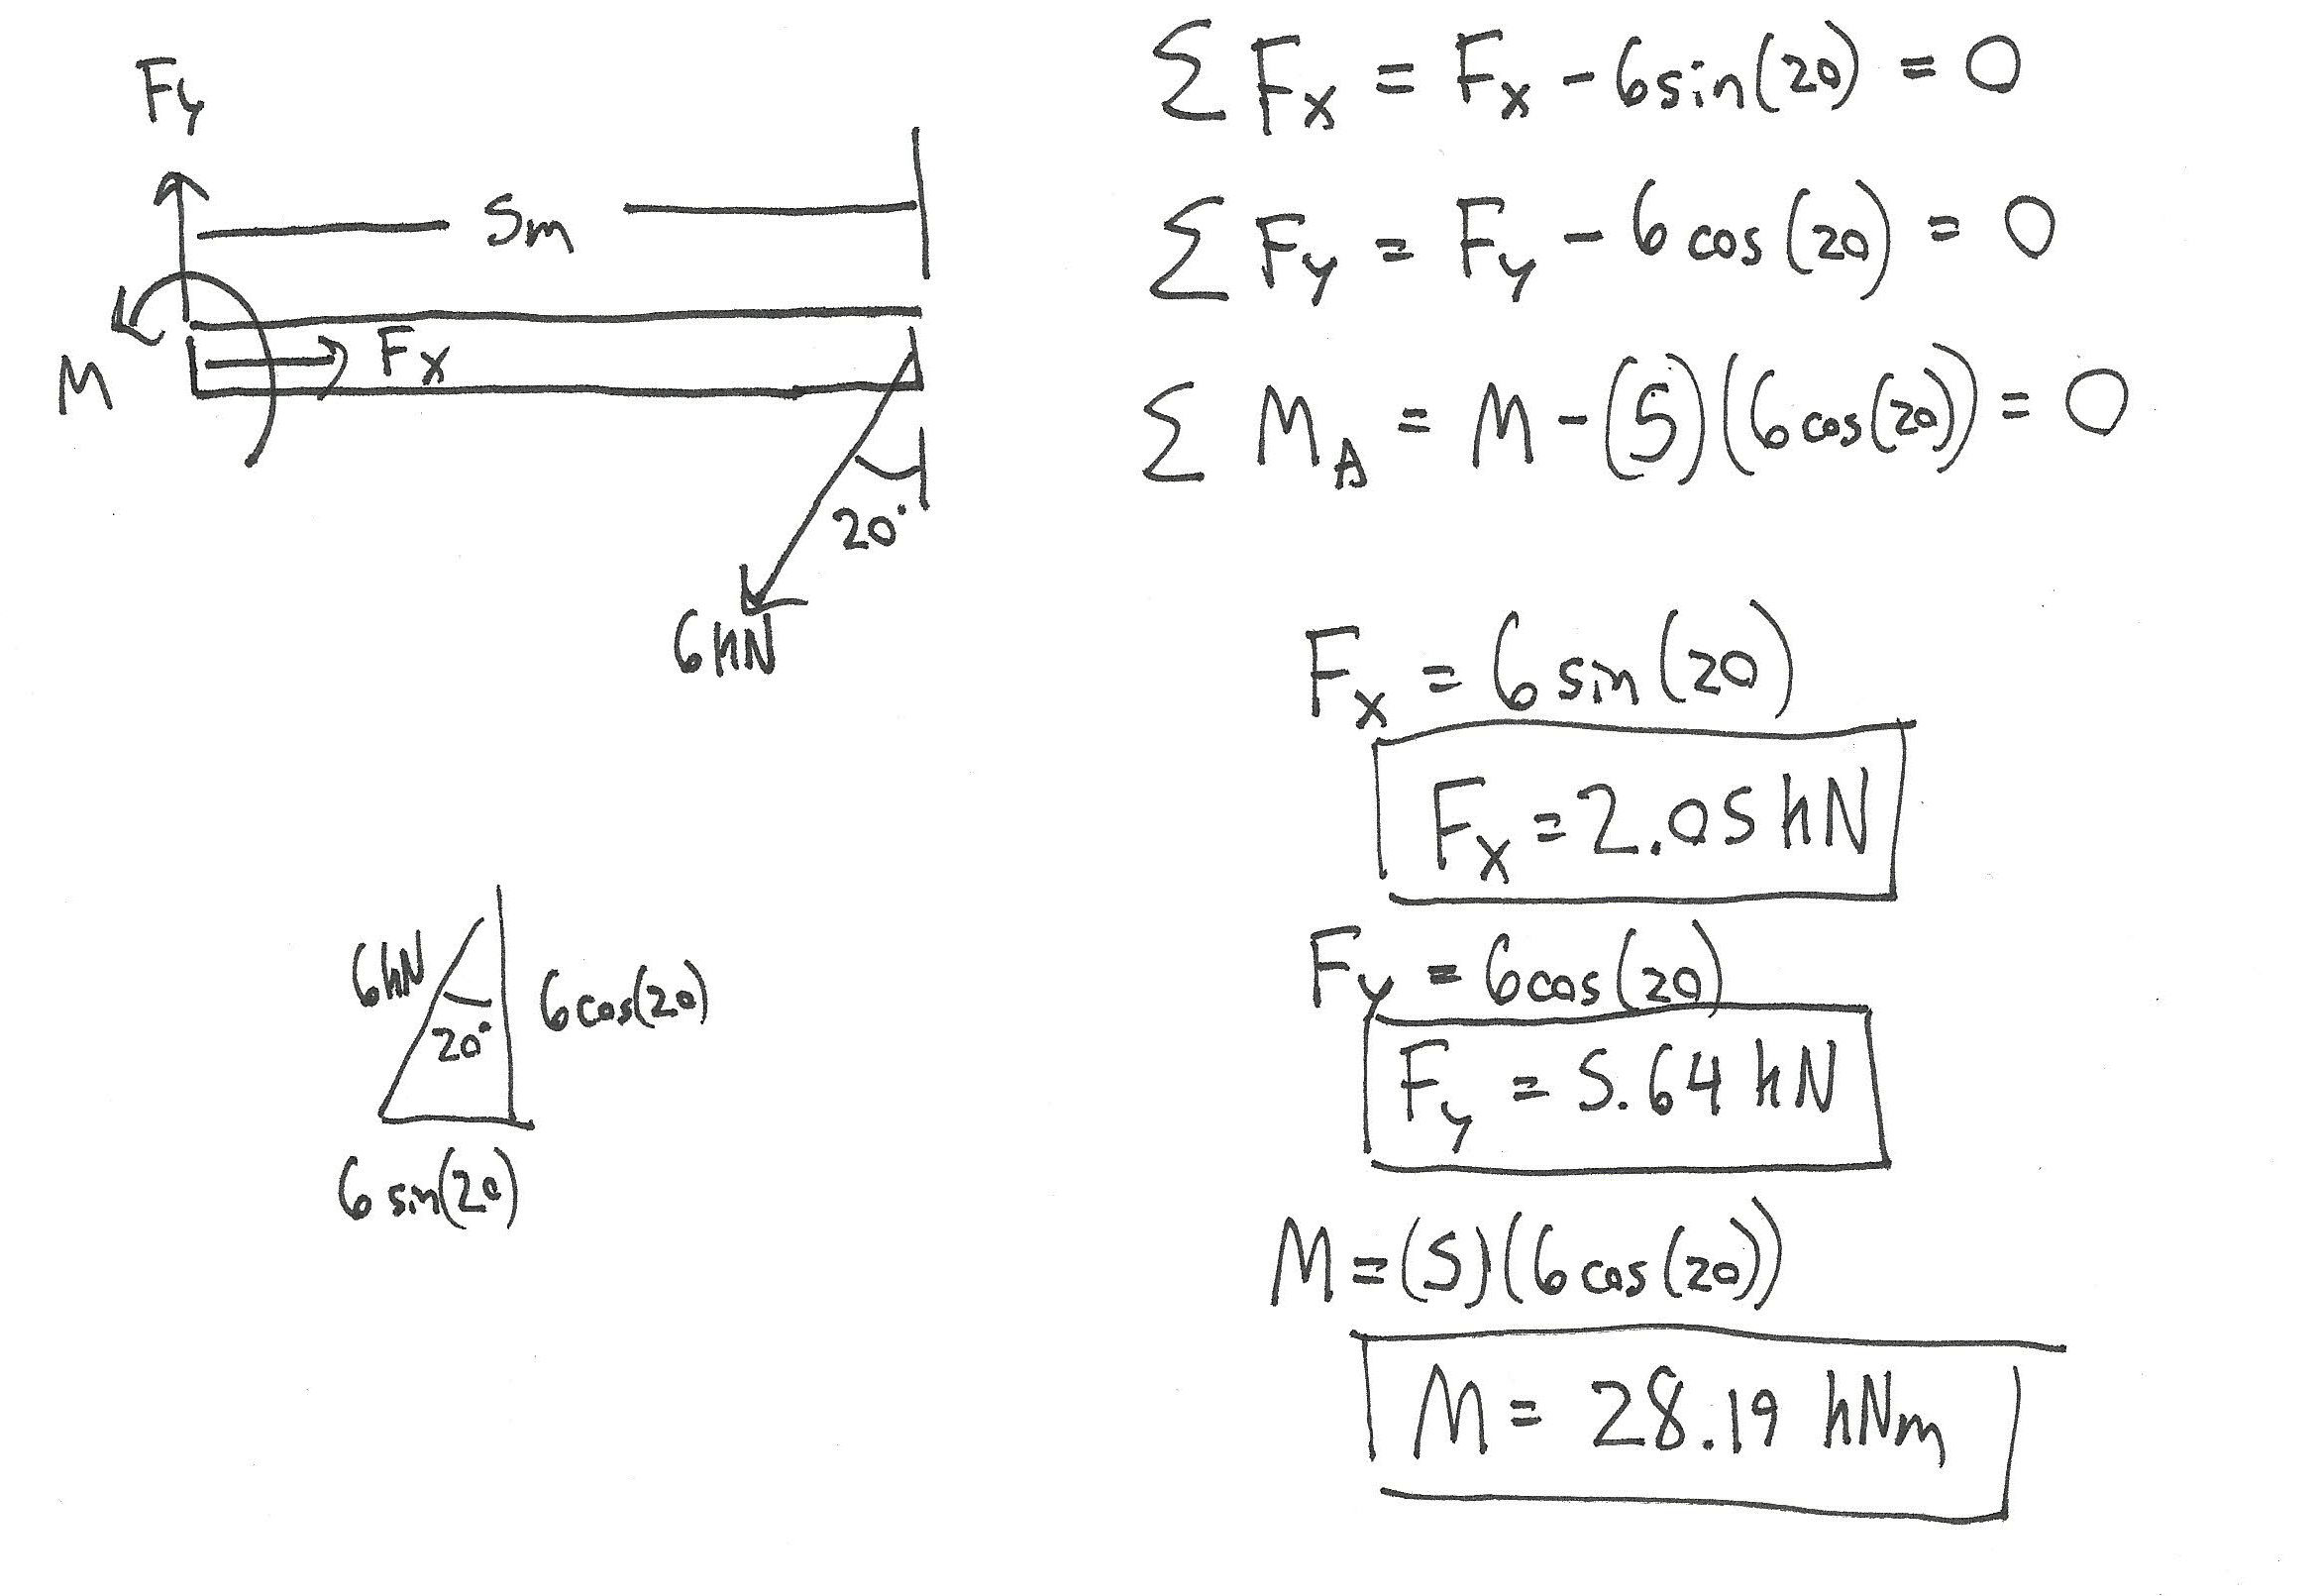 Fy
5m
M
Fx
20°
6kN
6kN
20°
6cos(20)
6 sin(20)
Σ Fx = Fx - 6sin(20) = 0
Σ Fy = Fy - 6 cos(20) = 0
Σ MA = M - (5)(6cos(20)) = 0
Fx = 6 sin(20)
Fx = 2.05 kN
Fy = 6cos(20)
Fy = 5.64 kN
M = (5)(6 cos(20))
M = 28.19 kNm